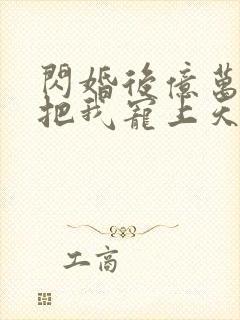 閃婚後億萬
把我寵上天
工商